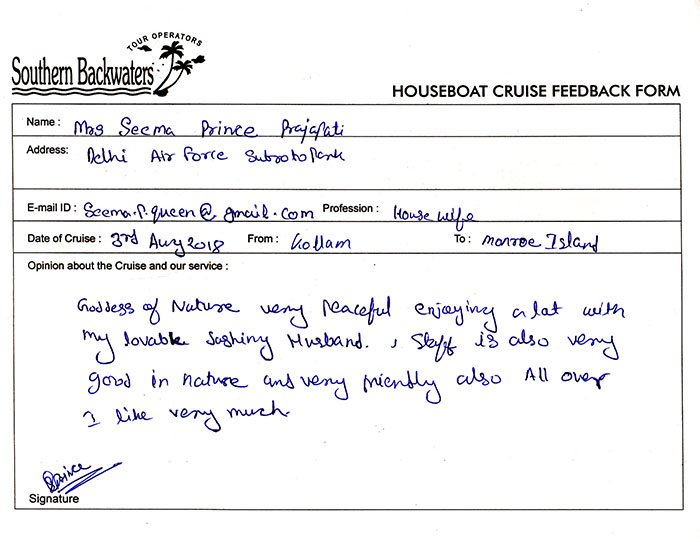 TOUR OPERATORS
Southern Backwaters
HOUSEBOAT CRUISE FEEDBACK FORM
Name : Mrs Seema Prince Prajapati
Address: Delhi Air Force Subroto Park
E-mail ID : Seema.P.queen@gmail.com Profession : House wife
Date of Cruise : 3rd Aug 2018 From : Kollam To : Monroe Island
Opinion about the Cruise and our service :
Goddess of Nature very Peaceful enjoying a lot with
my lovable Husband. , Staff is also very
good in nature and very friendly also All over
I like very much.
Prince
Signature